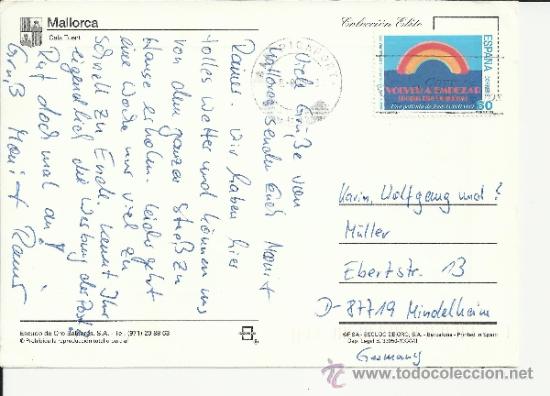 Mallorca
Cala Tuent
Colección Elite
ESPAÑA
CORREOS
VOLVER A EMPEZAR
60
Viele Grüße von
Mallorca senden Euch Moni +
Rainer. Wir haben hier
tolles Wetter und können uns
von dem ganzen Streß zu
Hause erholen. Leider geht
eine Woche nur viel zu
schnell zu Ende. Kennt Ihr
eigentlich die Werbung der Post?
Ruf doch mal an!
Gruß Moni + Rainer
Karin, Wolfgang und ?
Müller
Ebertstr. 13
D-87719 Mindelheim
Germany
Escudo de Oro S.A. - Tel. (971)
© Prohibida la reproducción total o parcial
ESCUDO DE ORO, S.A. - Barcelona - Printed in Spain
Dep. Legal B.
www.todocoleccion.net